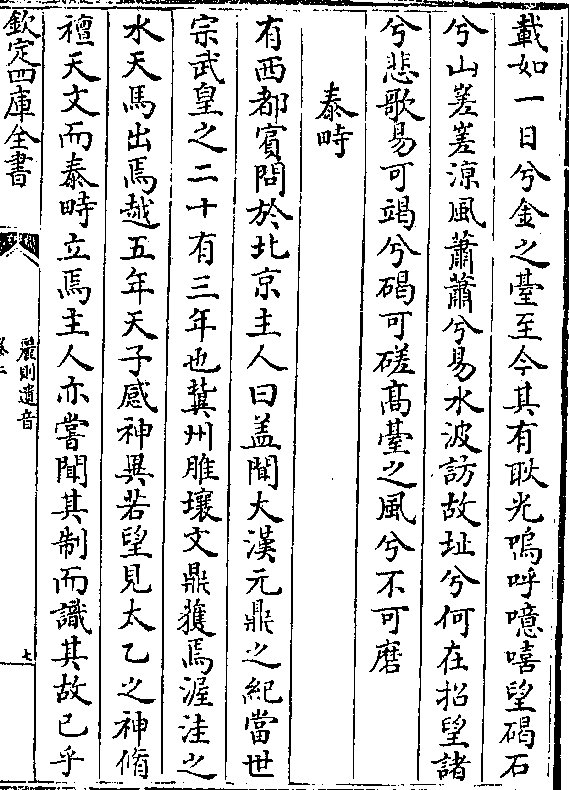 載如一日兮金之臺至今其有耿光嗚呼噫嘻望碣石
兮山嵳嵳涼風蕭蕭兮易水波訪故址兮何在招望諸
兮悲歌易可竭兮碣可磋髙臺之風兮不可磨
泰畤
有西都賔問於北京主人曰盖聞大漢元鼎之紀當世
宗武皇之二十有三年也冀州脽壤文鼎獲焉渥洼之
水天馬出焉越五年天子感神異若望見太乙之神脩
禮天文而泰畤立焉主人亦嘗聞其制而識其故已乎
欽定四庫全書
麗則遺音
卷二
七